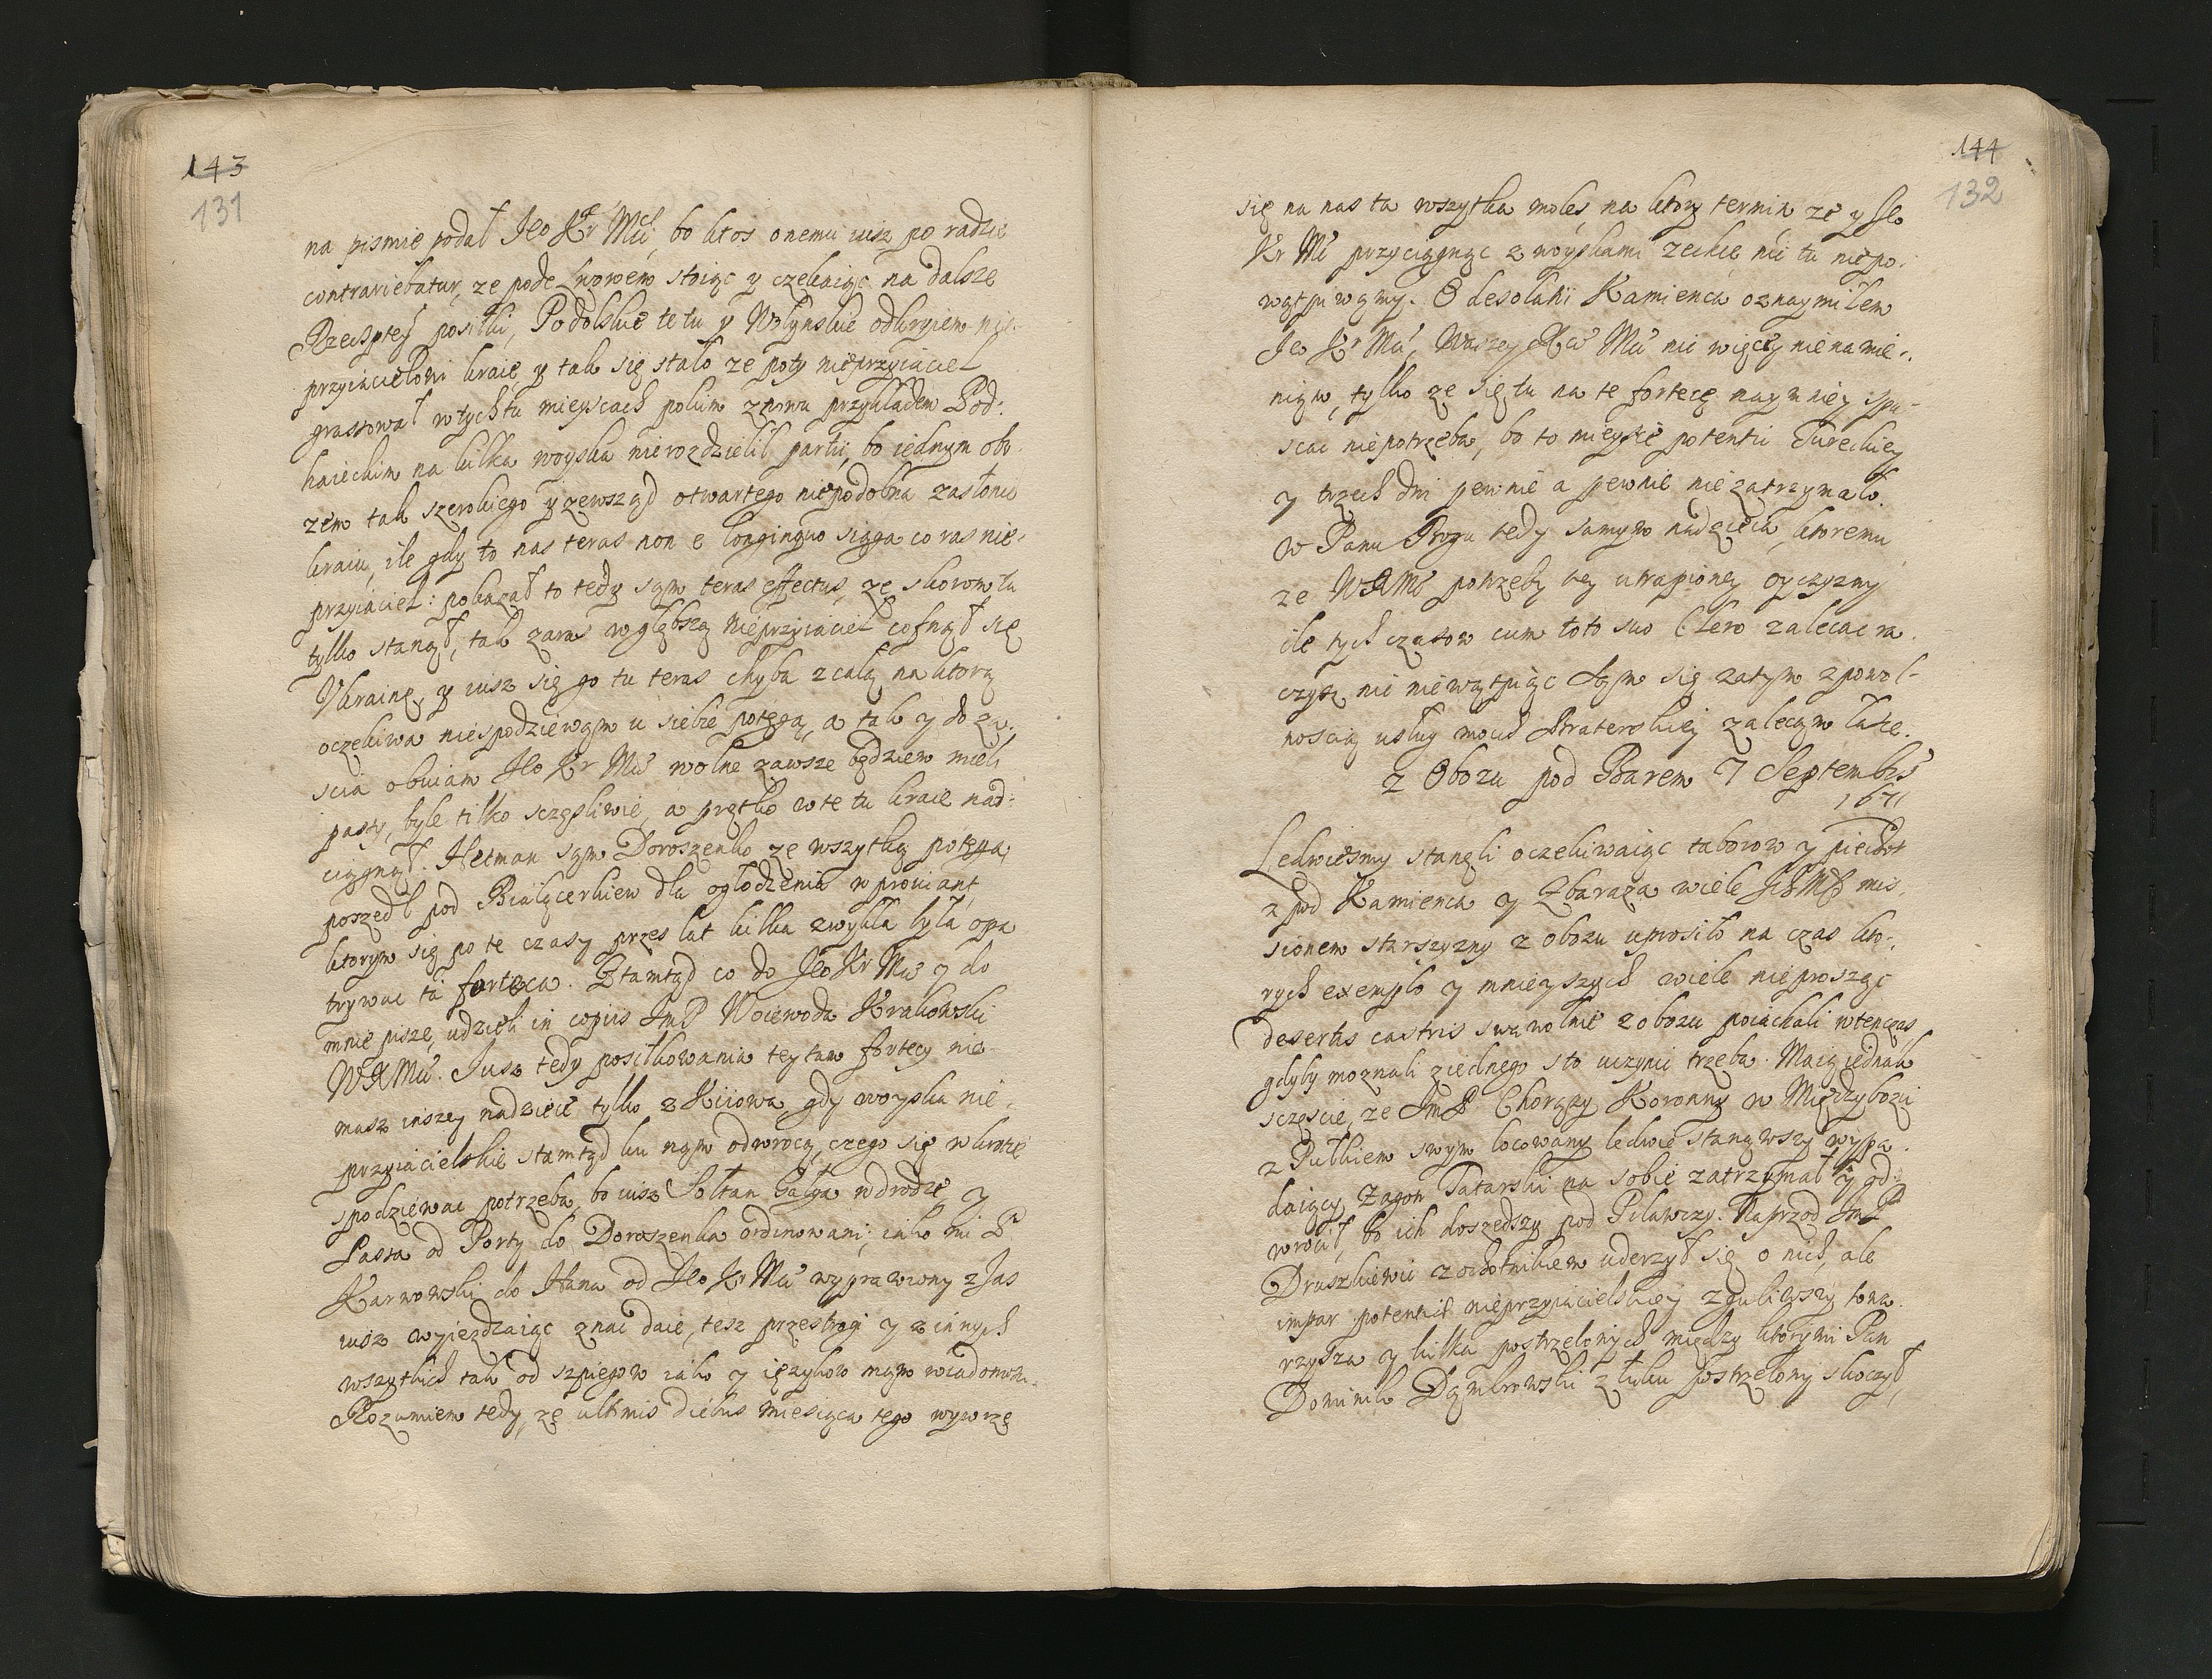 143
131
na pismie podał Jeo Kr Mći bo ktos onemu iusz po radzie
contrariebatur, ze pode Lwowem stoiąc y czekaiąc na dalsze
Rzeczptey posiłki, Podolskie te tu y Wołynskie odkryiem nie-
przyiacielowi kraie, y tak się stało ze poty nieprzyiaciel
grassował w tych tu mieyscach pokim znowu przykładem Pod-
haieckim na kilka woyska nierozdzielił partii, bo iednym obo
zem tak szerokiego y zewsząd otwartego niepodobna zasłonic
kraiu, ile gdy to nas teras non e longinquo siąga co ras nie-
przyiaciel: pokazał to tedy sąm teras effectus, ze skorom tu
tylko stanął, tak zaras w głębszą nieprzyiaciel cofnął się
Ukrainę, y iusz się go tu teras chyba z całą na ktorą
oczekiwa niespodziewąm u siebie potęgą, a tak y do ze-
scia obuiam Jeo Kr Mći wolne zawsze będziem mieli
pasty, byle tilko sczęsliwie, a prętko w te tu kraie nad-
ciągnął. Hetman sąm Doroszenko ze wszytką potęgą
poszedł pod Białącerkiew dla ogłodzenia w prowiant
ktorym się po te czasy przes lat kilka zwykła była opa
trywac ta forteca. Ztamtąd co do Jeo Kr Mći y do
mnie pisze, udzieli in copiis JmP Woiewoda Krakowski
WXMći. Jusz tedy posiłkowania tey tam fortecy nie
masz inszey nadzieie tylko z Kiiowa, gdy woyska nie-
przyiacielskie stamtąd ku nąm odwrocą, czego się w krotce
spodziewac potrzeba, bo iusz Sołtan Gałga w drodze, y
Bassa od Porty do Doroszenka ordinowani; iako mi P.
Karwowski do Hana od Jeo Kr Mći wyprawiony z Jas
iusz wyiezdzaiąc znac daie, tesz przestrogi y z innych
wszytkich tak od szpiegow iako y ięzykow mąm wiadomosci.
Rozumiem tedy, ze ultimis diebus miesiąca tego wywrze
144
132
się na nas ta wszytka moles, na ktory termin ze y Jeo
Kr Mć przyciągnąc z woyskami zechce, nic tu niepo-
wątpiwąmy. O desolatii Kamienca oznaymiłem
Jeo Kr Mći, Waszey Xcei Mći nic więcey nienamie-
nięm, tylko ze się tu na te fortecę naymniey spu-
scac niepotrzeba, bo to mieysce potentii Tureckiey
y trzech dni pewnie a pewnie niezatrzymało.
w Panu Bogu tedy samym nadzieia, ktoremu
ze WXMć potrzeby tey utrapioney oyczyzny
ile tych czasow cum toto suo Clero zalecac ra-
czysz nic niewątpiąc Sąm się zatym z powol-
noscią usług moich Braterskiey zalecąm łasce.
z Obozu pod Barem 7 Septembris
1671
Ledwiesmy stanęli oczekiwaiąc taborow y piechot
z pod Kamienca y Zbaraza wiele JchMP mis-
sionem starszyzny z obozu uprosiło na czas kto-
rych exemplo y mnieyszych wiele nieprosząc
desertis castris swawolnie z obozu poiachali w tenczas
gdyby moznali ziednego sto uczynic trzeba. Maią iednak
sczęscie, ze JmP Chorązy Koronny w Międzybozu
z Pułkiem swym locowany ledwie stanąwszy wypa-
daiący zagon Tatarski na sobie zatrzymał y od-
wrocił, bo ich doszedszy pod Pilawczy. Naprzod JmP
Druszkiewic z ochotnikiem uderzył się o nich, ale
impar potentiae nieprzyiacielskiey zgubiwszy towa-
rzysza y kilka postrzelonych między ktorymi Pan
Dominik Dąmbrowski z łuku postrzelony skoczył,